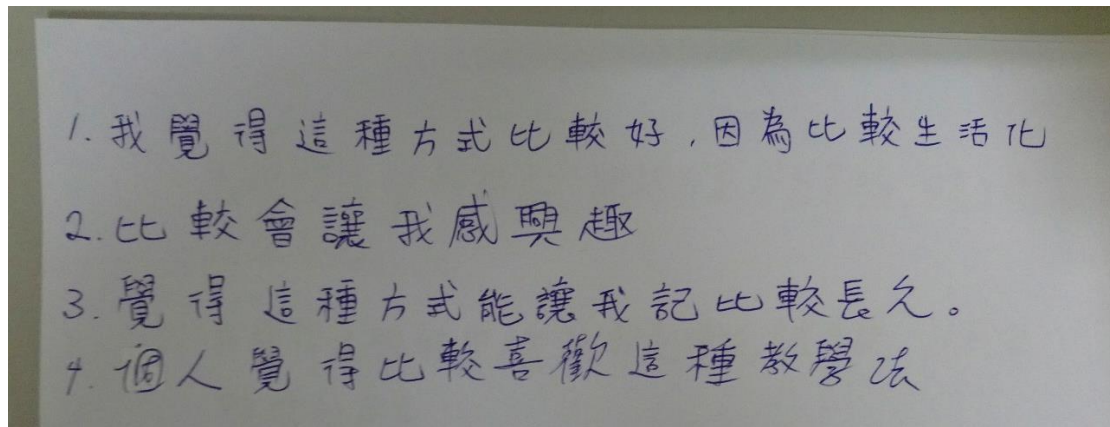 1. 我覺得這種方式比較好,因為比較生活化
2. 比較會讓我感興趣
3. 覺得這種方式能讓我記比較長久。
4. 個人覺得比較喜歡這種教學法